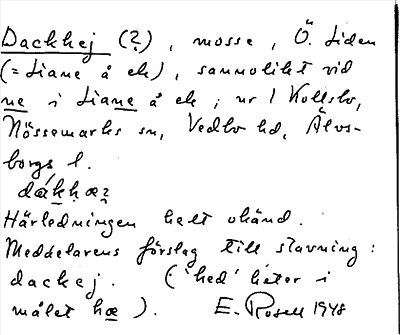 Dackhej (?), mosse, Ö. Liden
(= Liane å ek), sannolikt vid
ne i Liane å ek; nr 1 Kollsbo,
Nössemarks sn, Vedbo hd, Älvs-
borgs l.
dákhæ?
Härledningen helt okänd.
Meddelarens förslag till stavning:
dackej. ('hed' heter i
målet hæ). E. Rosell 1948